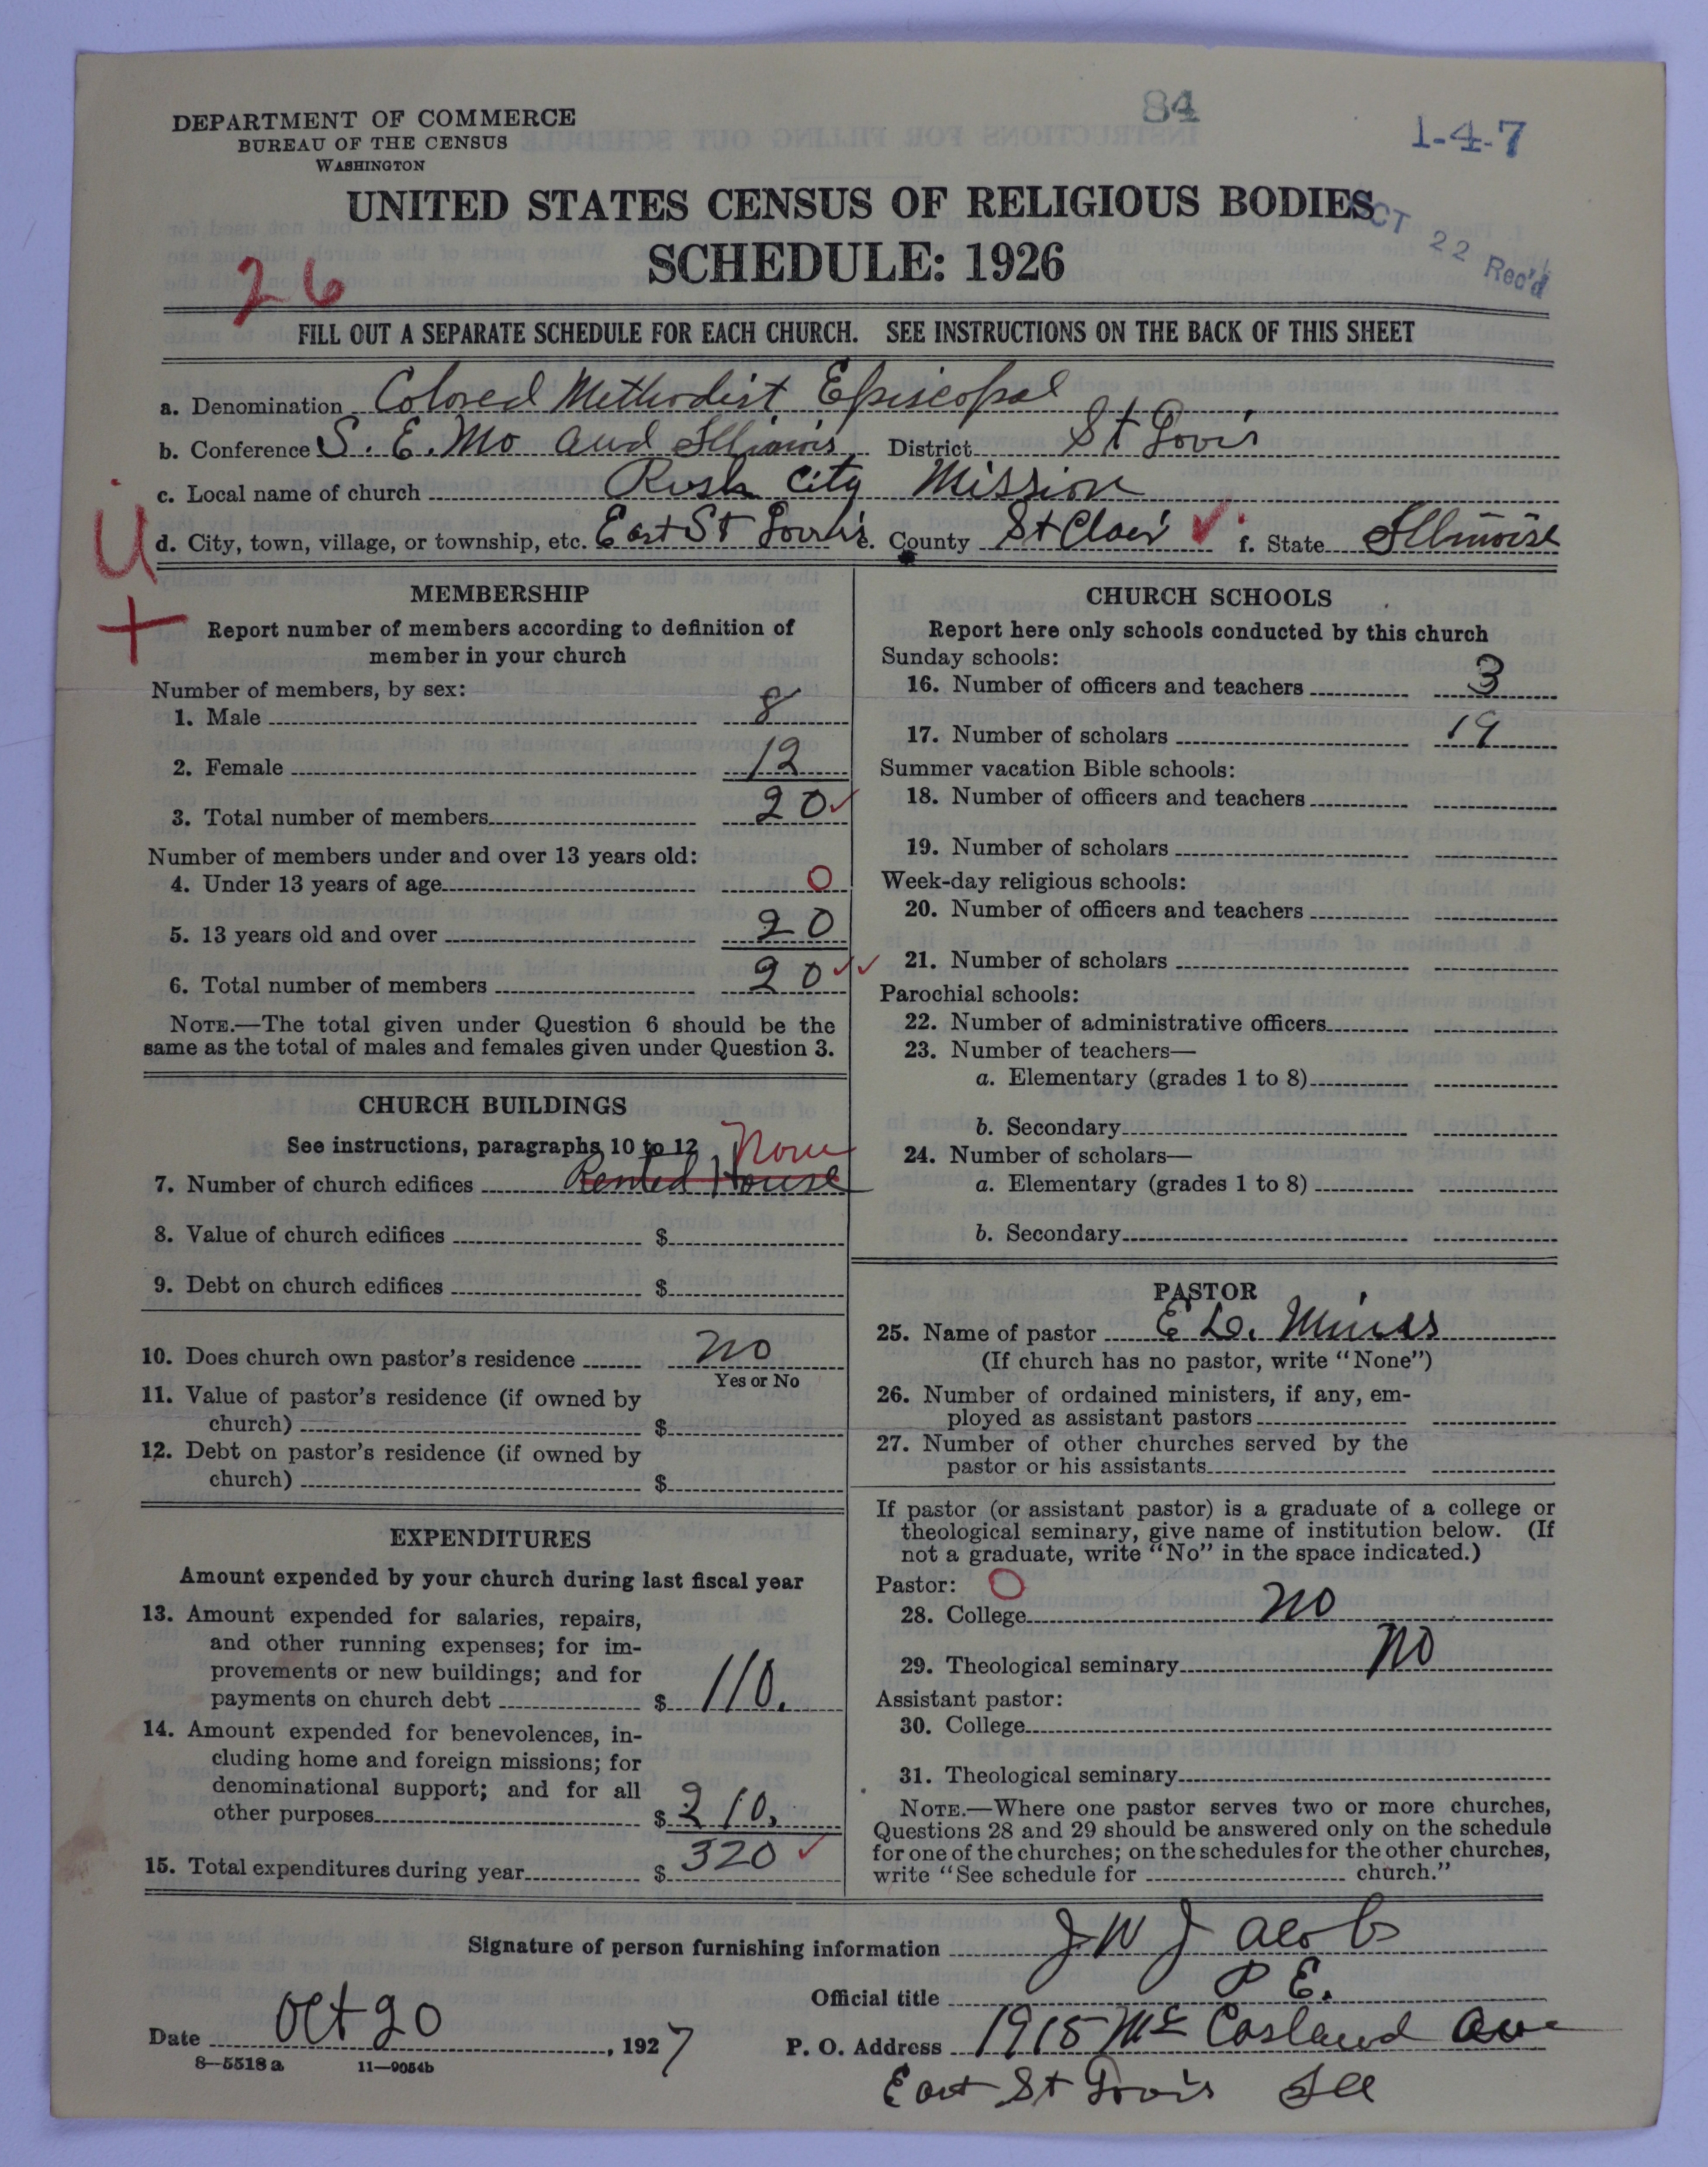 84
1-4-7
DEPARTMENT OF COMMERCE
BUREAU OF THE CENSUS
WASHINGTON
UNITED STATES CENSUS OF RELIGIOUS BODIES
SCHEDULE: 1926
OCT 22 Rec'd
26
FILL OUT A SEPARATE SCHEDULE FOR EACH CHURCH. SEE INSTRUCTIONS ON THE BACK OF THIS SHEET
a. Denomination Colored Methodist Episcopal
b. Conference S. E. Mo and Illinois District St Lovis
c. Local name of church Rush City Mission
d. City, town, village, or township, etc. East St Lovis e. County St Clair ✓ f. State Illinoise
MEMBERSHIP
Report number of members according to definition of
member in your church
Number of members, by sex:
1. Male 8
2. Female 12
3. Total number of members 20 ✓
Number of members under and over 13 years old:
4. Under 13 years of age 0
5. 13 years old and over 20
6. Total number of members 20 ✓✓
NOTE.—The total given under Question 6 should be the
same as the total of males and females given under Question 3.
CHURCH BUILDINGS
See instructions, paragraphs 10 to 12 None
7. Number of church edifices Rented House
8. Value of church edifices $
9. Debt on church edifices $
10. Does church own pastor's residence no
Yes or No
11. Value of pastor's residence (if owned by
church) $
12. Debt on pastor's residence (if owned by
church) $
EXPENDITURES
Amount expended by your church during last fiscal year
13. Amount expended for salaries, repairs,
and other running expenses; for im-
provements or new buildings; and for
payments on church debt $ 110.
14. Amount expended for benevolences, in-
cluding home and foreign missions; for
denominational support; and for all
other purposes $ 210.
15. Total expenditures during year $ 320 ✓
CHURCH SCHOOLS
Report here only schools conducted by this church
Sunday schools:
16. Number of officers and teachers 3
17. Number of scholars 19
Summer vacation Bible schools:
18. Number of officers and teachers
19. Number of scholars
Week-day religious schools:
20. Number of officers and teachers
21. Number of scholars
Parochial schools:
22. Number of administrative officers
23. Number of teachers—
a. Elementary (grades 1 to 8)
b. Secondary
24. Number of scholars—
a. Elementary (grades 1 to 8)
b. Secondary
PASTOR
25. Name of pastor E
(If church has no pastor, write "None")
26. Number of ordained ministers, if any, em-
ployed as assistant pastors
27. Number of other churches served by the
pastor or his assistants
If pastor (or assistant pastor) is a graduate of a college or
theological seminary, give name of institution below. (If
not a graduate, write "No" in the space indicated.)
Pastor: O
28. College no
29. Theological seminary no
Assistant pastor:
30. College
31. Theological seminary
NOTE.—Where one pastor serves two or more churches,
Questions 28 and 29 should be answered only on the schedule
for one of the churches; on the schedules for the other churches,
write "See schedule for church."
Signature of person furnishing information J W Jacobs
Official title P. E.
Date Oct 20, 1927 P. O. Address 1915 Mc Casland Ave
8—5518 a 11—9054b
East St Lovis Ill